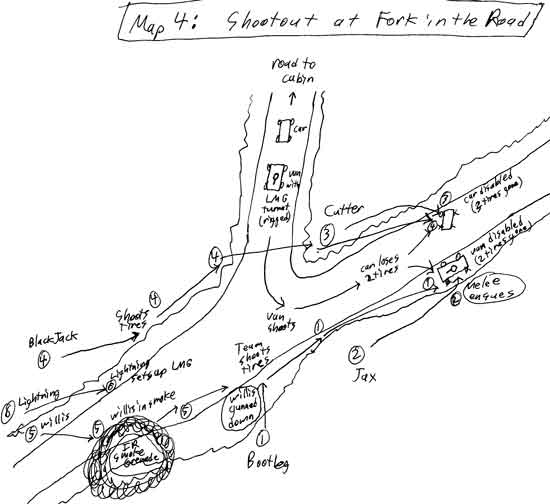 Map 4: Shootout at Fork in the Road
road to
cabin
car
van
with
LMG
turret
(rigged)
Cutter
3
5
4
car disabled
(2 tires gone)
van disabled
(2 tires gone)
car loses
2 tires
4
4
Shoots
tires
van
shoots
1
1
2
melee
ensues
BlackJack
4
Team
shoots
tires
2
Jax
Lightning
sets up LMG
6
6 Lightning
5 willis
5
willis in smoke
5
IR
smoke
Grenade
willis
gunned
down
1
Bootleg